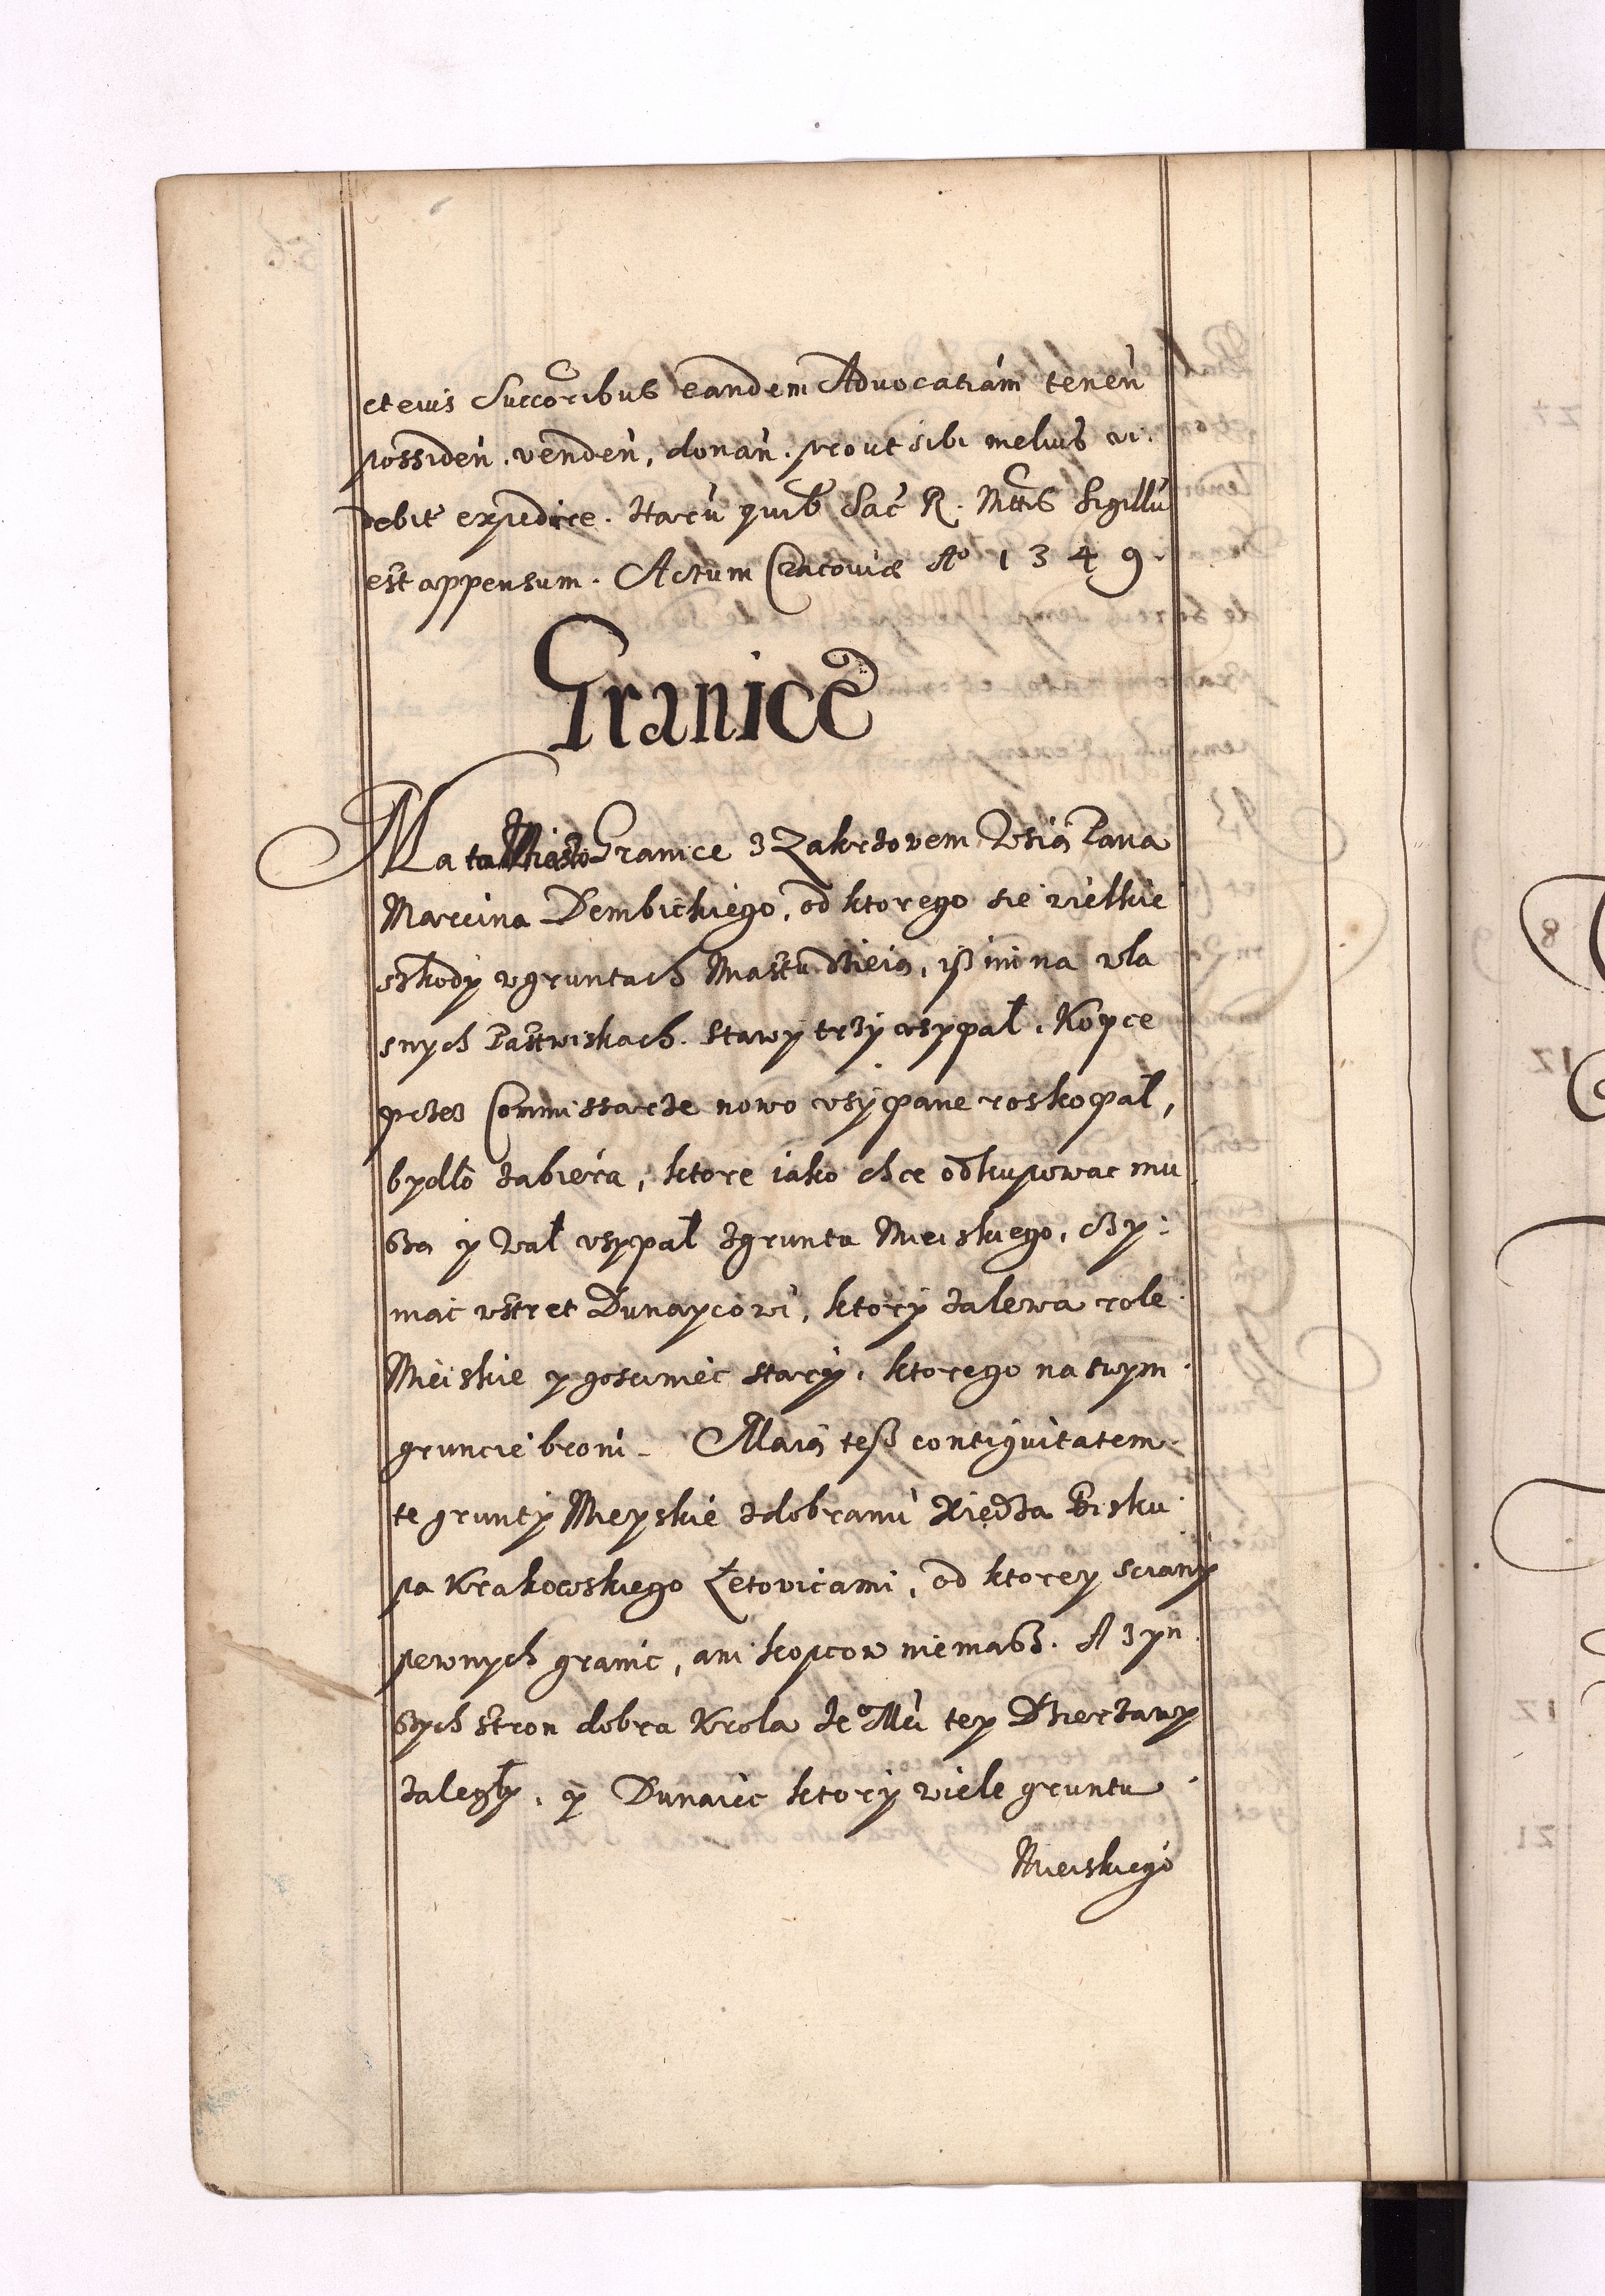 et eius Succoribus eandem Advocatiam teneń
possideń. vendeń, donań. prout sibi melius vi:
debit expedire. Harũ quib Sac R. Mttis Sigillũ
est appensum. Actum Cracoviæ Aº 1349.
Granice
Ma to Miasto Granice z Zakrzowem Wsią Pana
Marcina Dembickiego, od ktorego sie wielkie
szkody w gruntach Miastu dzieią, iß im na wła
snych Pastwiskach. Stawy trzy wsypał, Kopce
przes Commissarze nowo vsypane roskopał,
bydło zabiera, ktore iako chce odkupowac mu
szą y Wał vsypał z gruntu Mieiskiego, czy:
niąc wstret Dunaycowi, ktory zalewa role
Mieiskie y gosciniec stary, ktorego na swym
gruncie broni. Maią teß contiguitatem
te grunty Meyskie z dobrami Xiędza Bisku
pa Krakowskiego Łetowicami, od ktorey sciany
pewnych granic, ani kopcow niemasz. A z yn
szych stron dobra Krola Jeº Mci tey Dzierzawy
zaległy, y Dunaiec ktory wiele gruntu
Mieiskiego